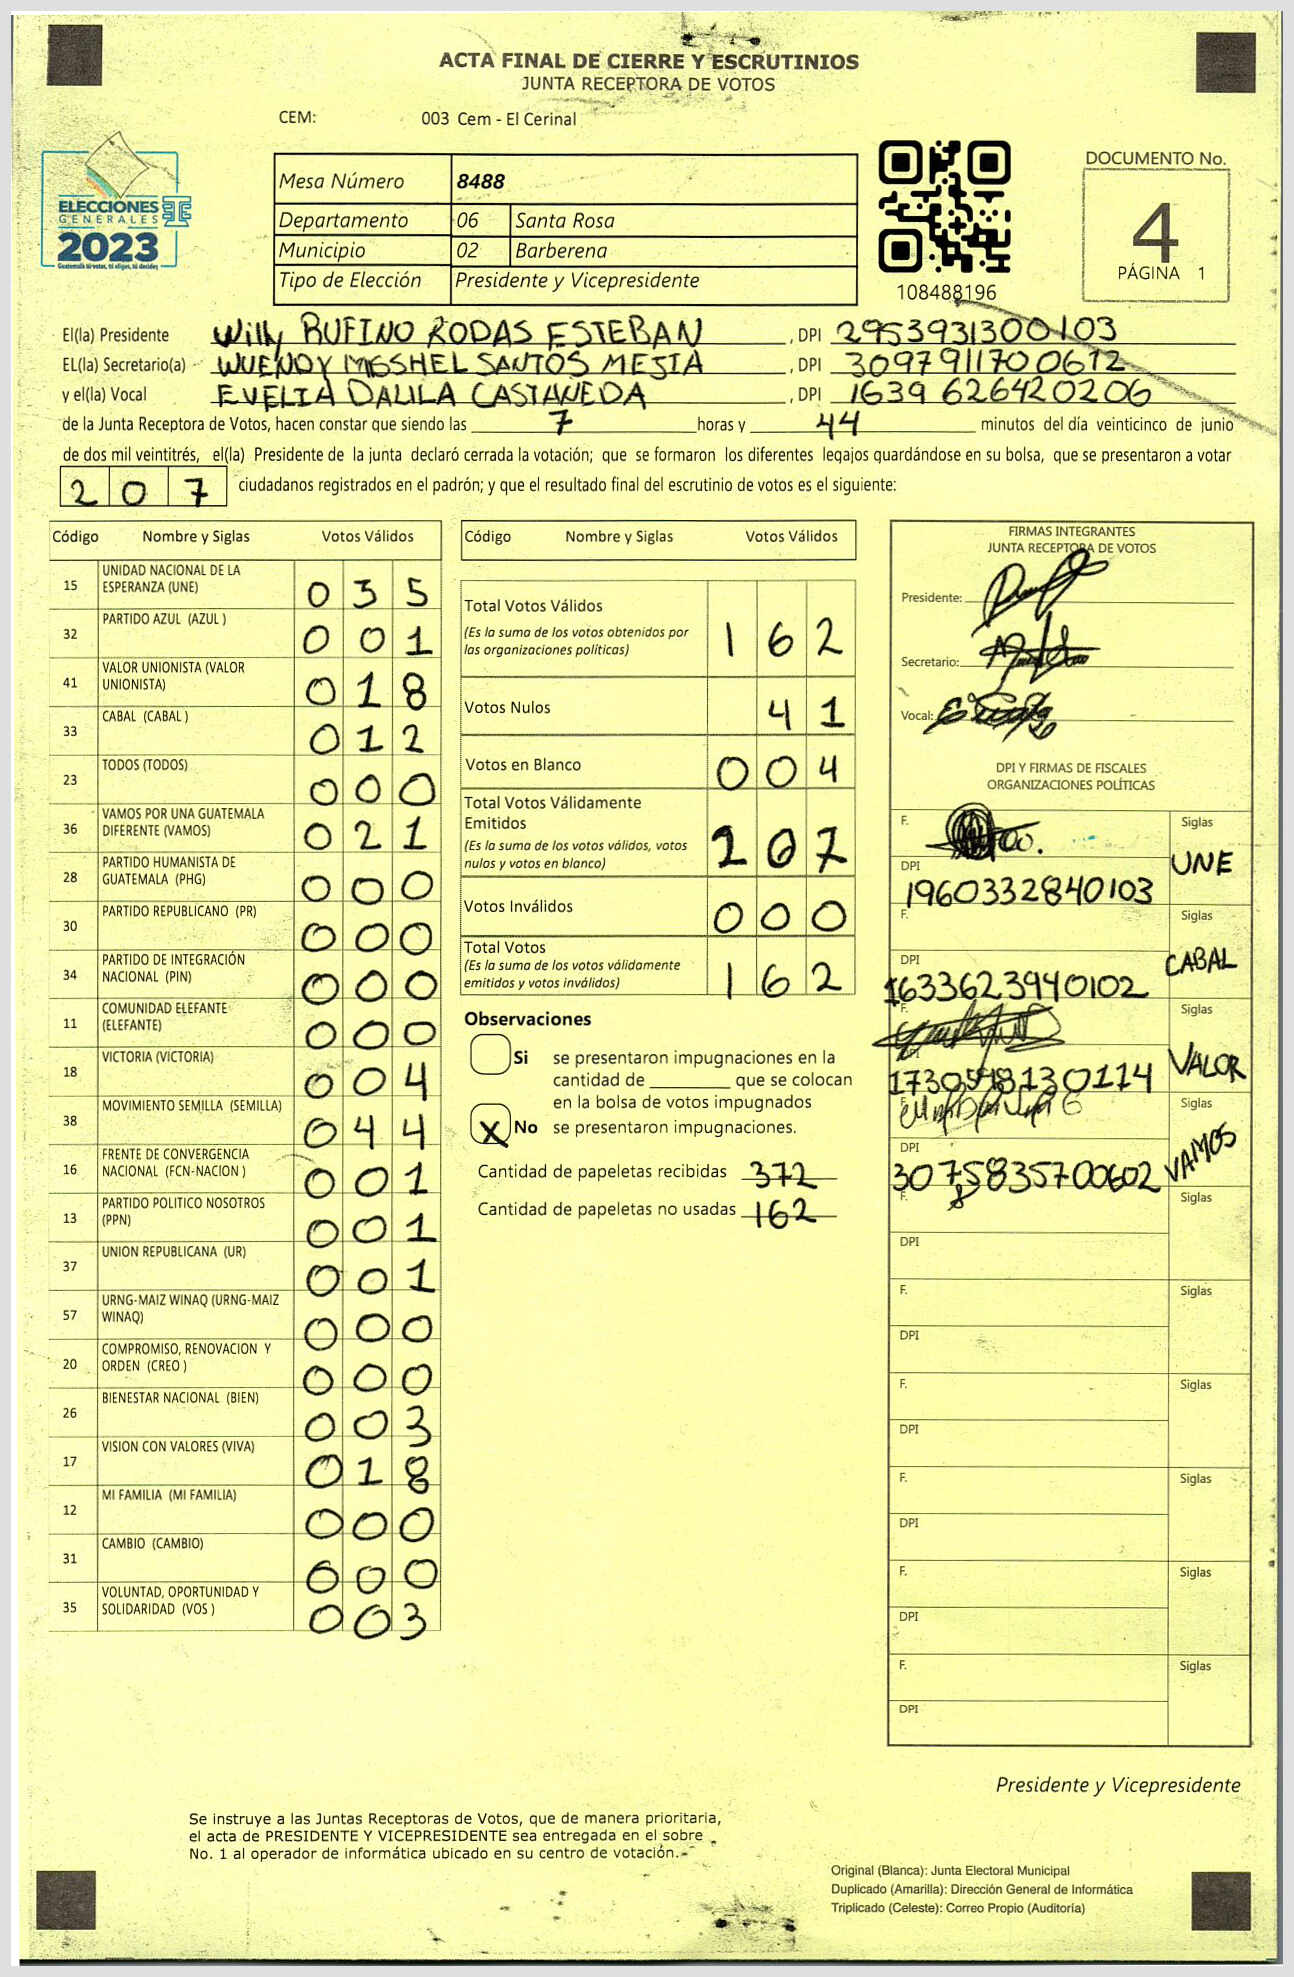 ACTA FINAL DE CIERRE Y ESCRUTINIOS
JUNTA RECEPTORA DE VOTOS
CEM: 003 Cem - El Cerinal
ELECCIONES
GENERALES
2023
Guatemala tú votas, tú eliges, tú decides
Mesa Número 8488
Departamento 06 Santa Rosa
Municipio 02 Barberena
Tipo de Elección Presidente y Vicepresidente
108488196
DOCUMENTO No.
4
PÁGINA 1
El(la) Presidente Willy RUFINO RODAS ESTEBAN , DPI 2953931300103
EL(la) Secretario(a) WUENDY MISSHEL SANTOS MEJIA , DPI 3097911700612
y el(la) Vocal EVELIA DALILA CASTAÑEDA , DPI 1639 626420206
de la Junta Receptora de Votos, hacen constar que siendo las 7 horas y 44 minutos del día veinticinco de junio
de dos mil veintitrés, el(la) Presidente de la junta declaró cerrada la votación; que se formaron los diferentes legajos guardándose en su bolsa, que se presentaron a votar
207 ciudadanos registrados en el padrón; y que el resultado final del escrutinio de votos es el siguiente:
Código Nombre y Siglas Votos Válidos
15 UNIDAD NACIONAL DE LA
ESPERANZA (UNE) 035
32 PARTIDO AZUL (AZUL ) 001
41 VALOR UNIONISTA (VALOR
UNIONISTA) 018
33 CABAL (CABAL ) 012
23 TODOS (TODOS) 000
36 VAMOS POR UNA GUATEMALA
DIFERENTE (VAMOS) 021
28 PARTIDO HUMANISTA DE
GUATEMALA (PHG) 000
30 PARTIDO REPUBLICANO (PR) 000
34 PARTIDO DE INTEGRACIÓN
NACIONAL (PIN) 000
11 COMUNIDAD ELEFANTE
(ELEFANTE) 000
18 VICTORIA (VICTORIA) 004
38 MOVIMIENTO SEMILLA (SEMILLA) 044
16 FRENTE DE CONVERGENCIA
NACIONAL (FCN-NACION ) 001
13 PARTIDO POLITICO NOSOTROS
(PPN) 001
37 UNION REPUBLICANA (UR) 001
57 URNG-MAIZ WINAQ (URNG-MAIZ
WINAQ) 000
20 COMPROMISO, RENOVACION Y
ORDEN (CREO ) 000
26 BIENESTAR NACIONAL (BIEN) 003
17 VISION CON VALORES (VIVA) 018
12 MI FAMILIA (MI FAMILIA) 000
31 CAMBIO (CAMBIO) 000
35 VOLUNTAD, OPORTUNIDAD Y
SOLIDARIDAD (VOS ) 003
Código Nombre y Siglas Votos Válidos
Total Votos Válidos
(Es la suma de los votos obtenidos por
las organizaciones políticas) 162
Votos Nulos 41
Votos en Blanco 004
Total Votos Válidamente
Emitidos
(Es la suma de los votos válidos, votos
nulos y votos en blanco) 207
Votos Inválidos 000
Total Votos
(Es la suma de los votos válidamente
emitidos y votos inválidos) 162
Observaciones
Si se presentaron impugnaciones en la
cantidad de ________ que se colocan
en la bolsa de votos impugnados
X No se presentaron impugnaciones.
Cantidad de papeletas recibidas 372
Cantidad de papeletas no usadas 162
FIRMAS INTEGRANTES
JUNTA RECEPTORA DE VOTOS
Presidente:
Secretario:
Vocal:
DPI Y FIRMAS DE FISCALES
ORGANIZACIONES POLÍTICAS
F. Siglas
UNE
DPI
1960332840103
F. Siglas
CABAL
DPI
1633623940102
F. Siglas
VALOR
DPI
F. Siglas
VAMOS
DPI
F. Siglas
DPI
F. Siglas
DPI
F. Siglas
DPI
F. Siglas
DPI
F. Siglas
DPI
F. Siglas
DPI
Presidente y Vicepresidente
Se instruye a las Juntas Receptoras de Votos, que de manera prioritaria,
el acta de PRESIDENTE Y VICEPRESIDENTE sea entregada en el sobre
No. 1 al operador de informática ubicado en su centro de votación.
Original (Blanca): Junta Electoral Municipal
Duplicado (Amarilla): Dirección General de Informática
Triplicado (Celeste): Correo Propio (Auditoría)